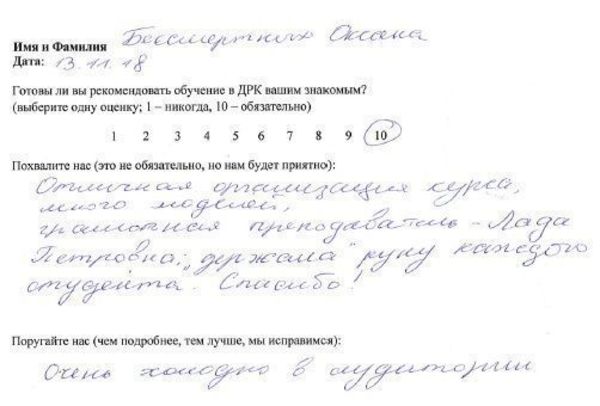 Имя и Фамилия Бессмертных Оксана
Дата: 13.11.18
Готовы ли вы рекомендовать обучение в ДРК вашим знакомым?
(выберите одну оценку; 1 – никогда, 10 – обязательно)
1 2 3 4 5 6 7 8 9 10
Похвалите нас (это не обязательно, но нам будет приятно):
Отличная организация курса,
много моделей,
грамотная преподаватель – Лада
Петровна; „держала" руку каждого
студента. Спасибо!
Поругайте нас (чем подробнее, тем лучше, мы исправимся):
Очень холодно в аудитории